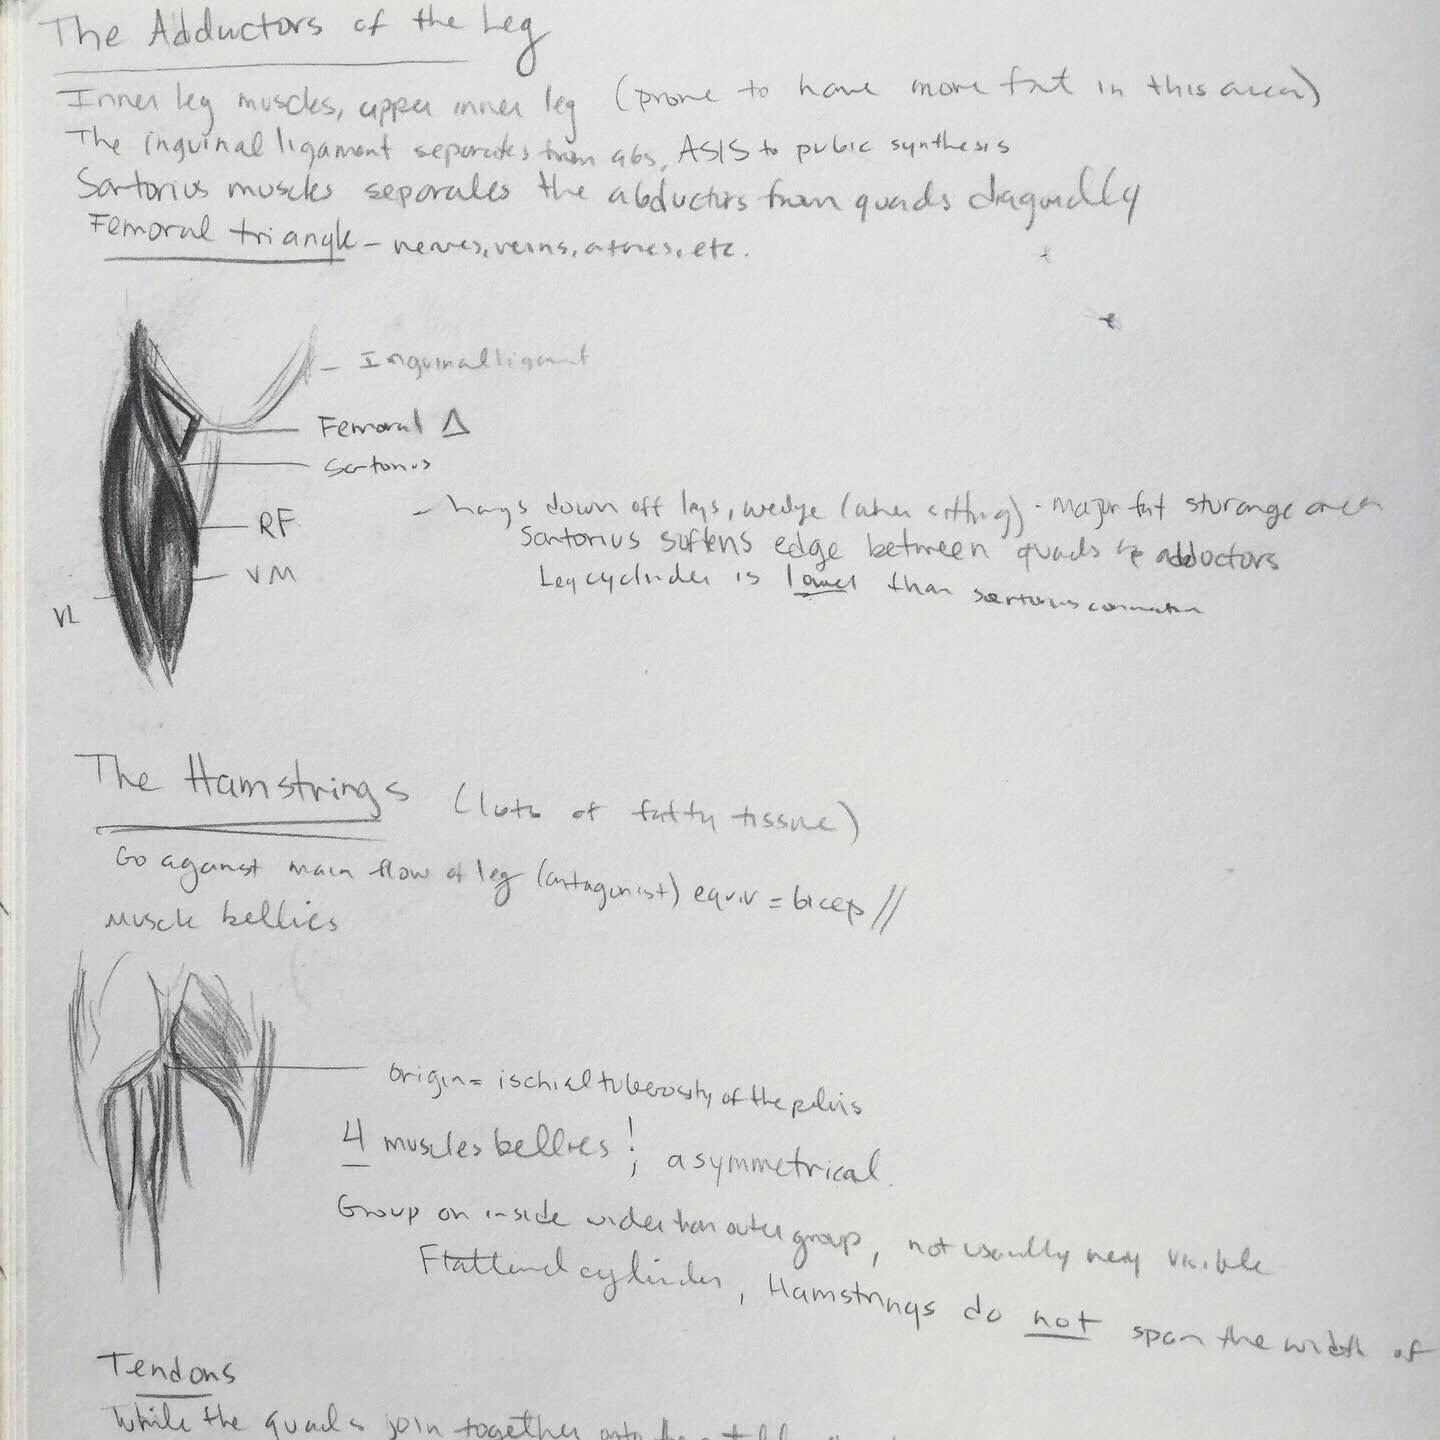 The Adductors of the Leg
Inner leg muscles, upper inner leg (prone to have more fat in this area)
The inguinal ligament separates from abs, ASIS to pubic synthesis
Sartorius muscles separates the abductors from quads diagonally
Femoral triangle - nerves, veins, arteries, etc.
- Inguinal ligament
Femoral Δ
Sartorius
- hangs down off legs, wedge (when sitting) - major fat storange area
RF
Sartorius softens edge between quads & adductors
VM
Leg cylinder is lower than sartorius
VL
The Hamstrings (lots of fatty tissue)
Go against main flow of leg (antagonist) equiv = bicep //
Muscle bellies
origin = ischial tuberosity of the pelvis
4 muscles bellies! ; asymmetrical.
Group on inside wider than outer group, not usually very visible
Flattened cylinder, Hamstrings do not span the width of
Tendons
While the quads join together